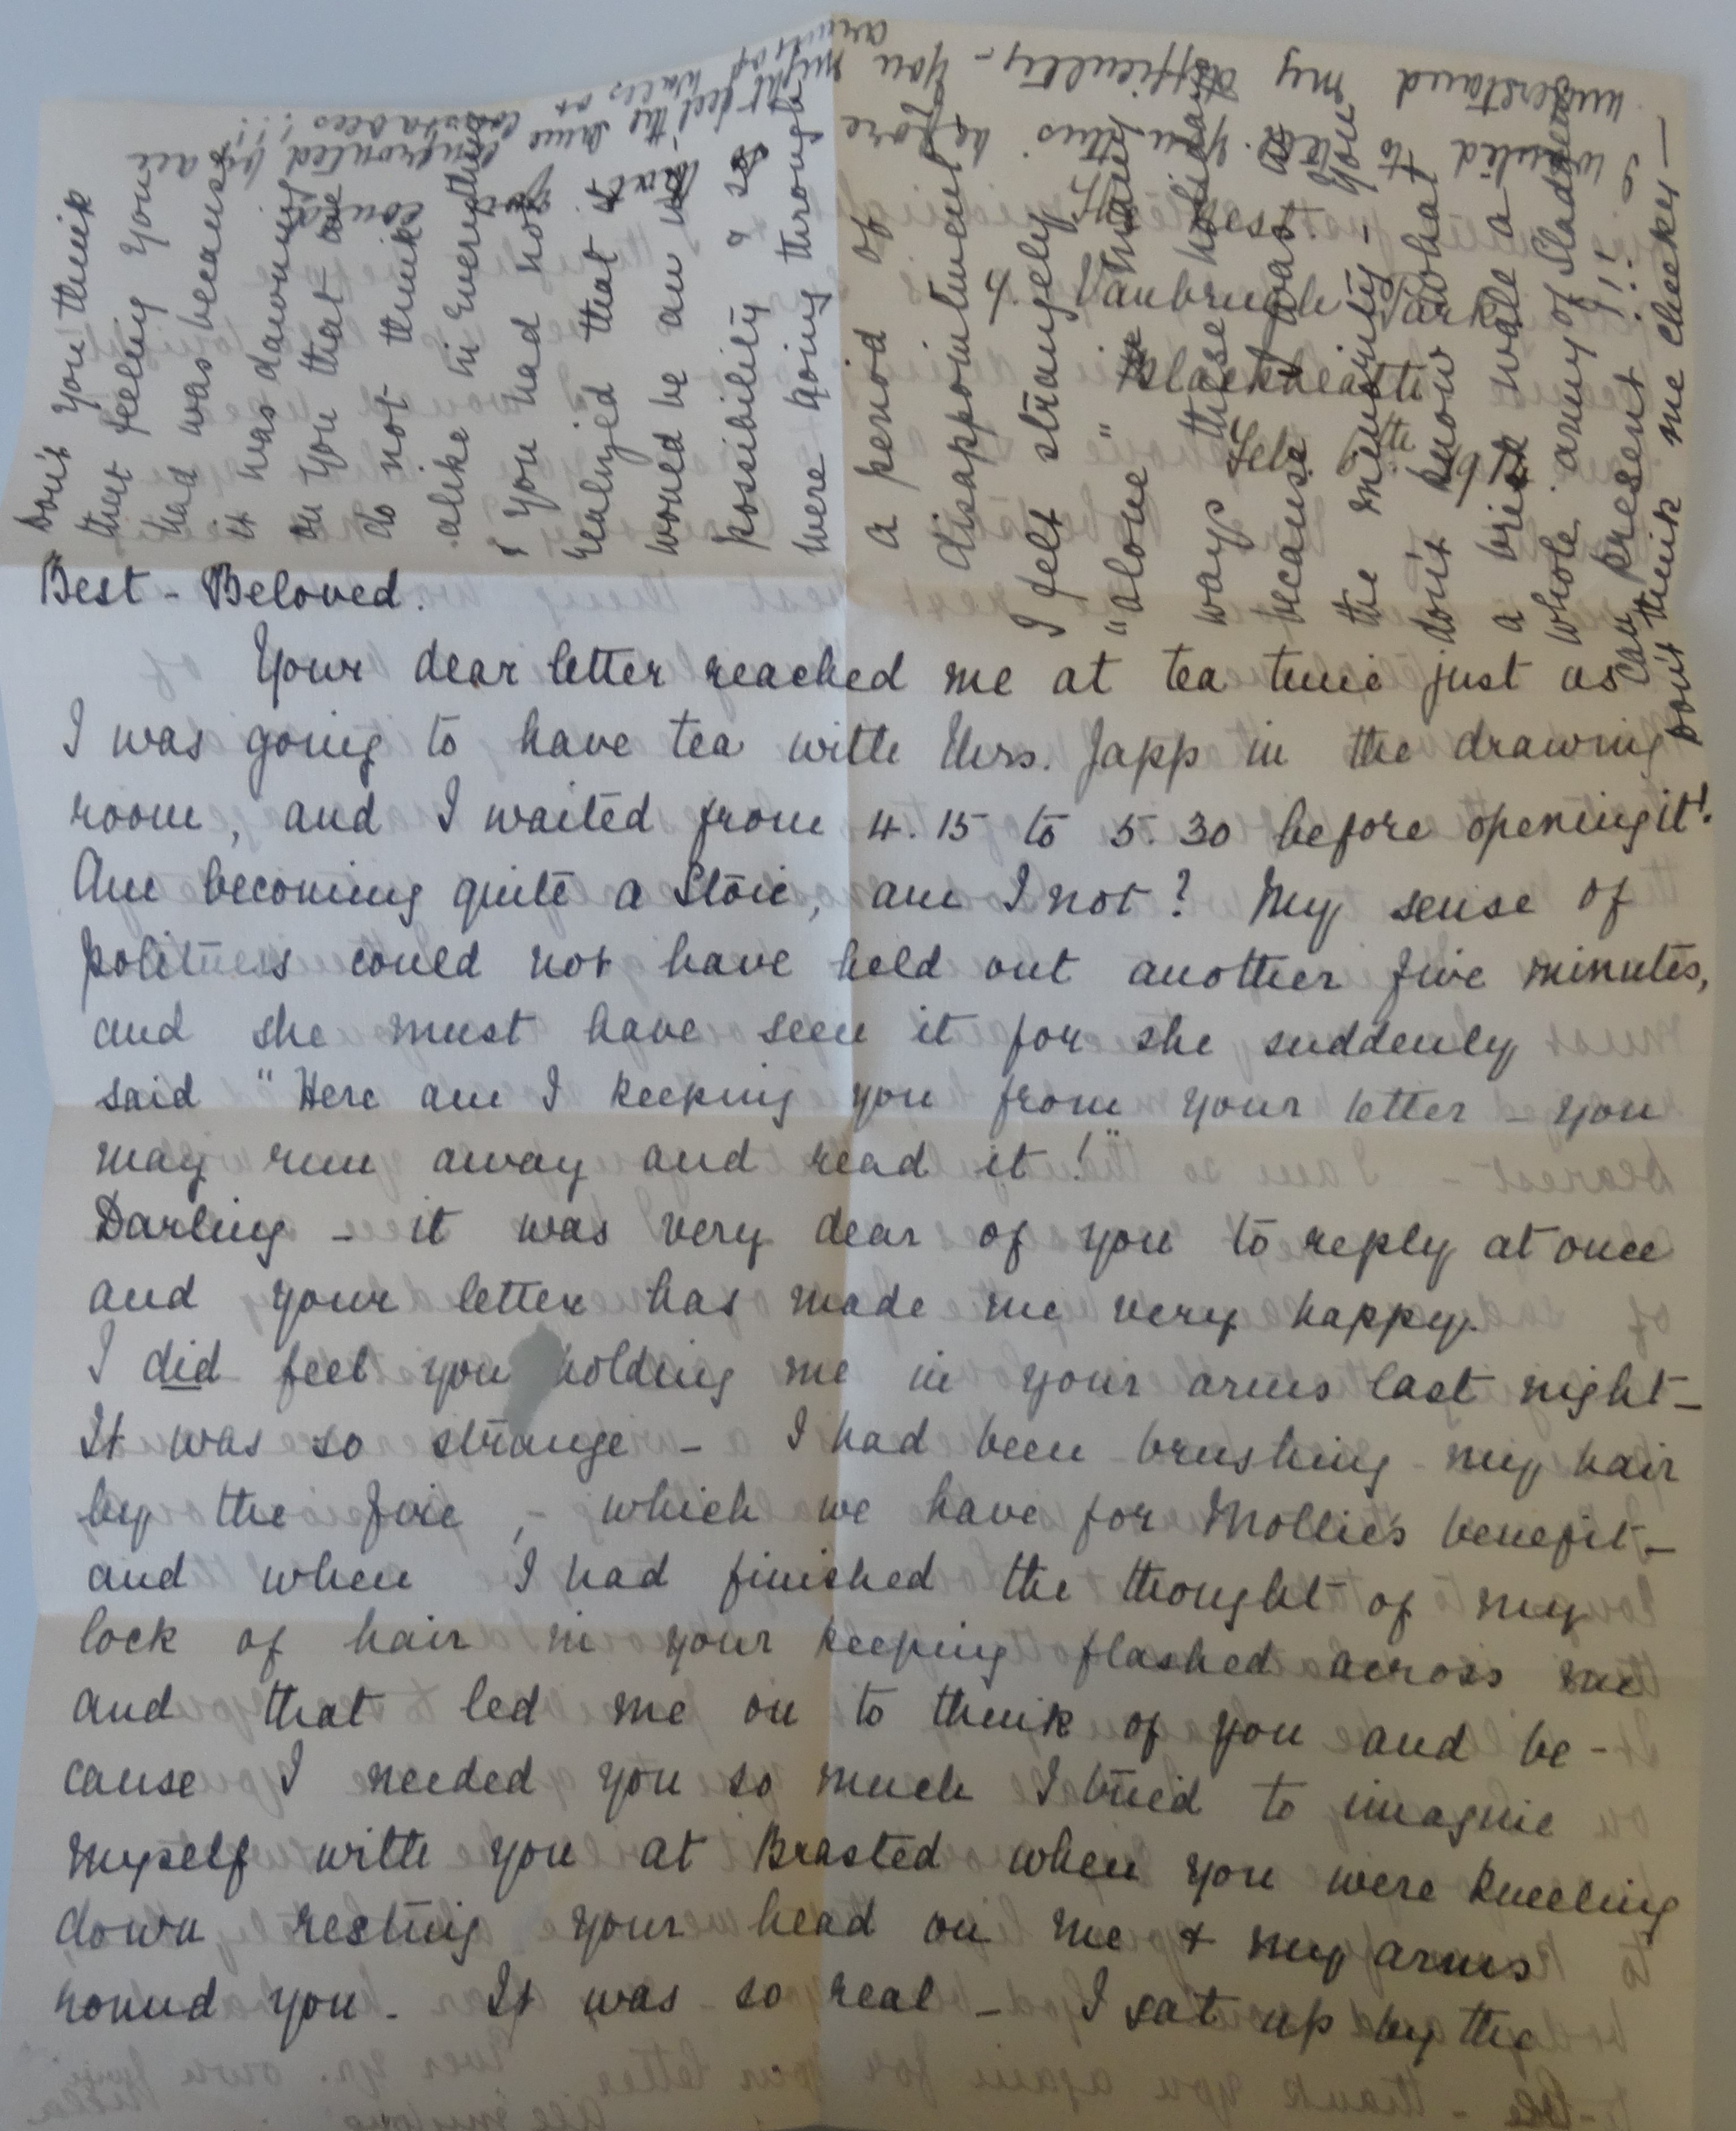 4. Vanbrugh Park
Blackheath
Feb. 6th 191
Best - Beloved.
Your dear letter reached me at tea time just as
I was going to have tea with Mrs. Japp in the drawing
room, and I waited from 4.15 to 5.30 before opening it!
Am becoming quite a Stoic, am I not? My sense of
politness could not have held out another five minutes,
and she must have seen it for she suddenly
said "Here am I keeping you from your letter - you
may run away and read it!"
Darling - it was very dear of you to reply at once
and your letter has made me very happy.
I did feel you holding me in your arms last night -
It was so strange - I had been brushing my hair
by the fire, - which we have for Mollie's benefit -
and when I had finished the thought of my
lock of hair in your keeping flashed across me
and that led me on to think of you and be-
cause I needed you so much I tried to imagine
myself with you at Brasted when you were kneeling
down resting your head on me & my arms
round you. It was so real - I sat up by the
Don't you think
that feeling you
had was because
it was dawning
on you that we
do not think
alike in everything
& you had not
realized that it
would be an im
possibility & so
were going through
a period of
disappointment
I felt strangely
"alone" in many
ways these holidays
because I was
the minority - you
don't know what
a brick wall a
whole army of Sladens
can present!!!
Don't think me cheeky -
I wanted to tell you this before
understand my difficulty - you
might feel the same
that you could
confronted by all
obstacles!!!